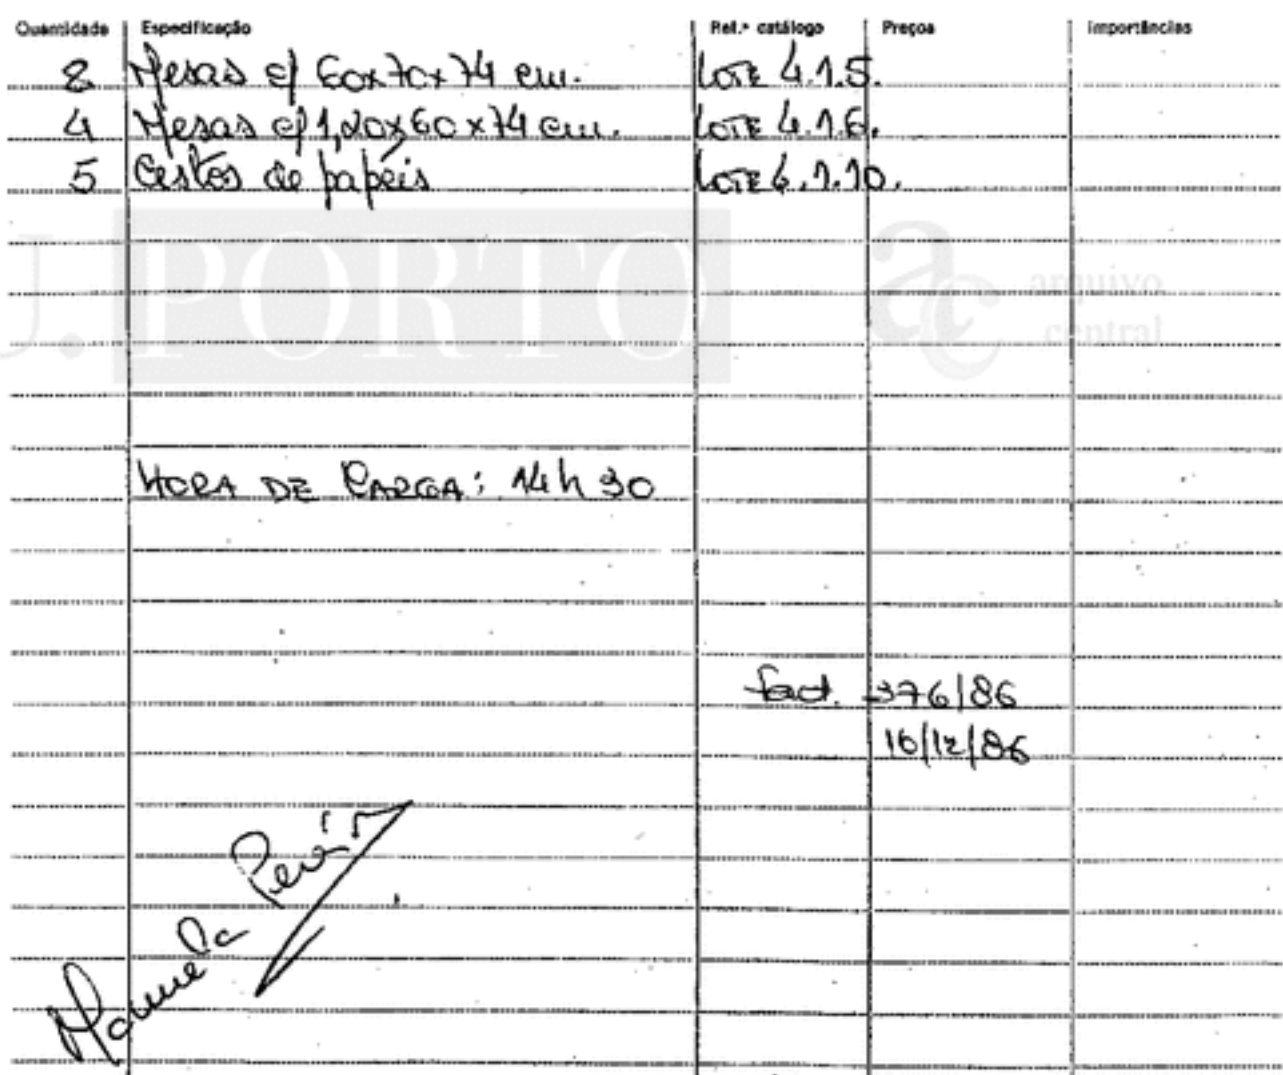 Quantidade Especificação Ref.ª catálogo Preços Importâncias
8 Mesas c/ 60x70x74 cm. LOTE 4.1.5.
4 Mesas c/ 1,20x60x74 cm. LOTE 4.1.6.
5 Cestos de papéis LOTE 6.1.10.
U. PORTO ac arquivo central
HORA DE CARGA: 14h30
fact. 376/86
16/12/86
Manuela